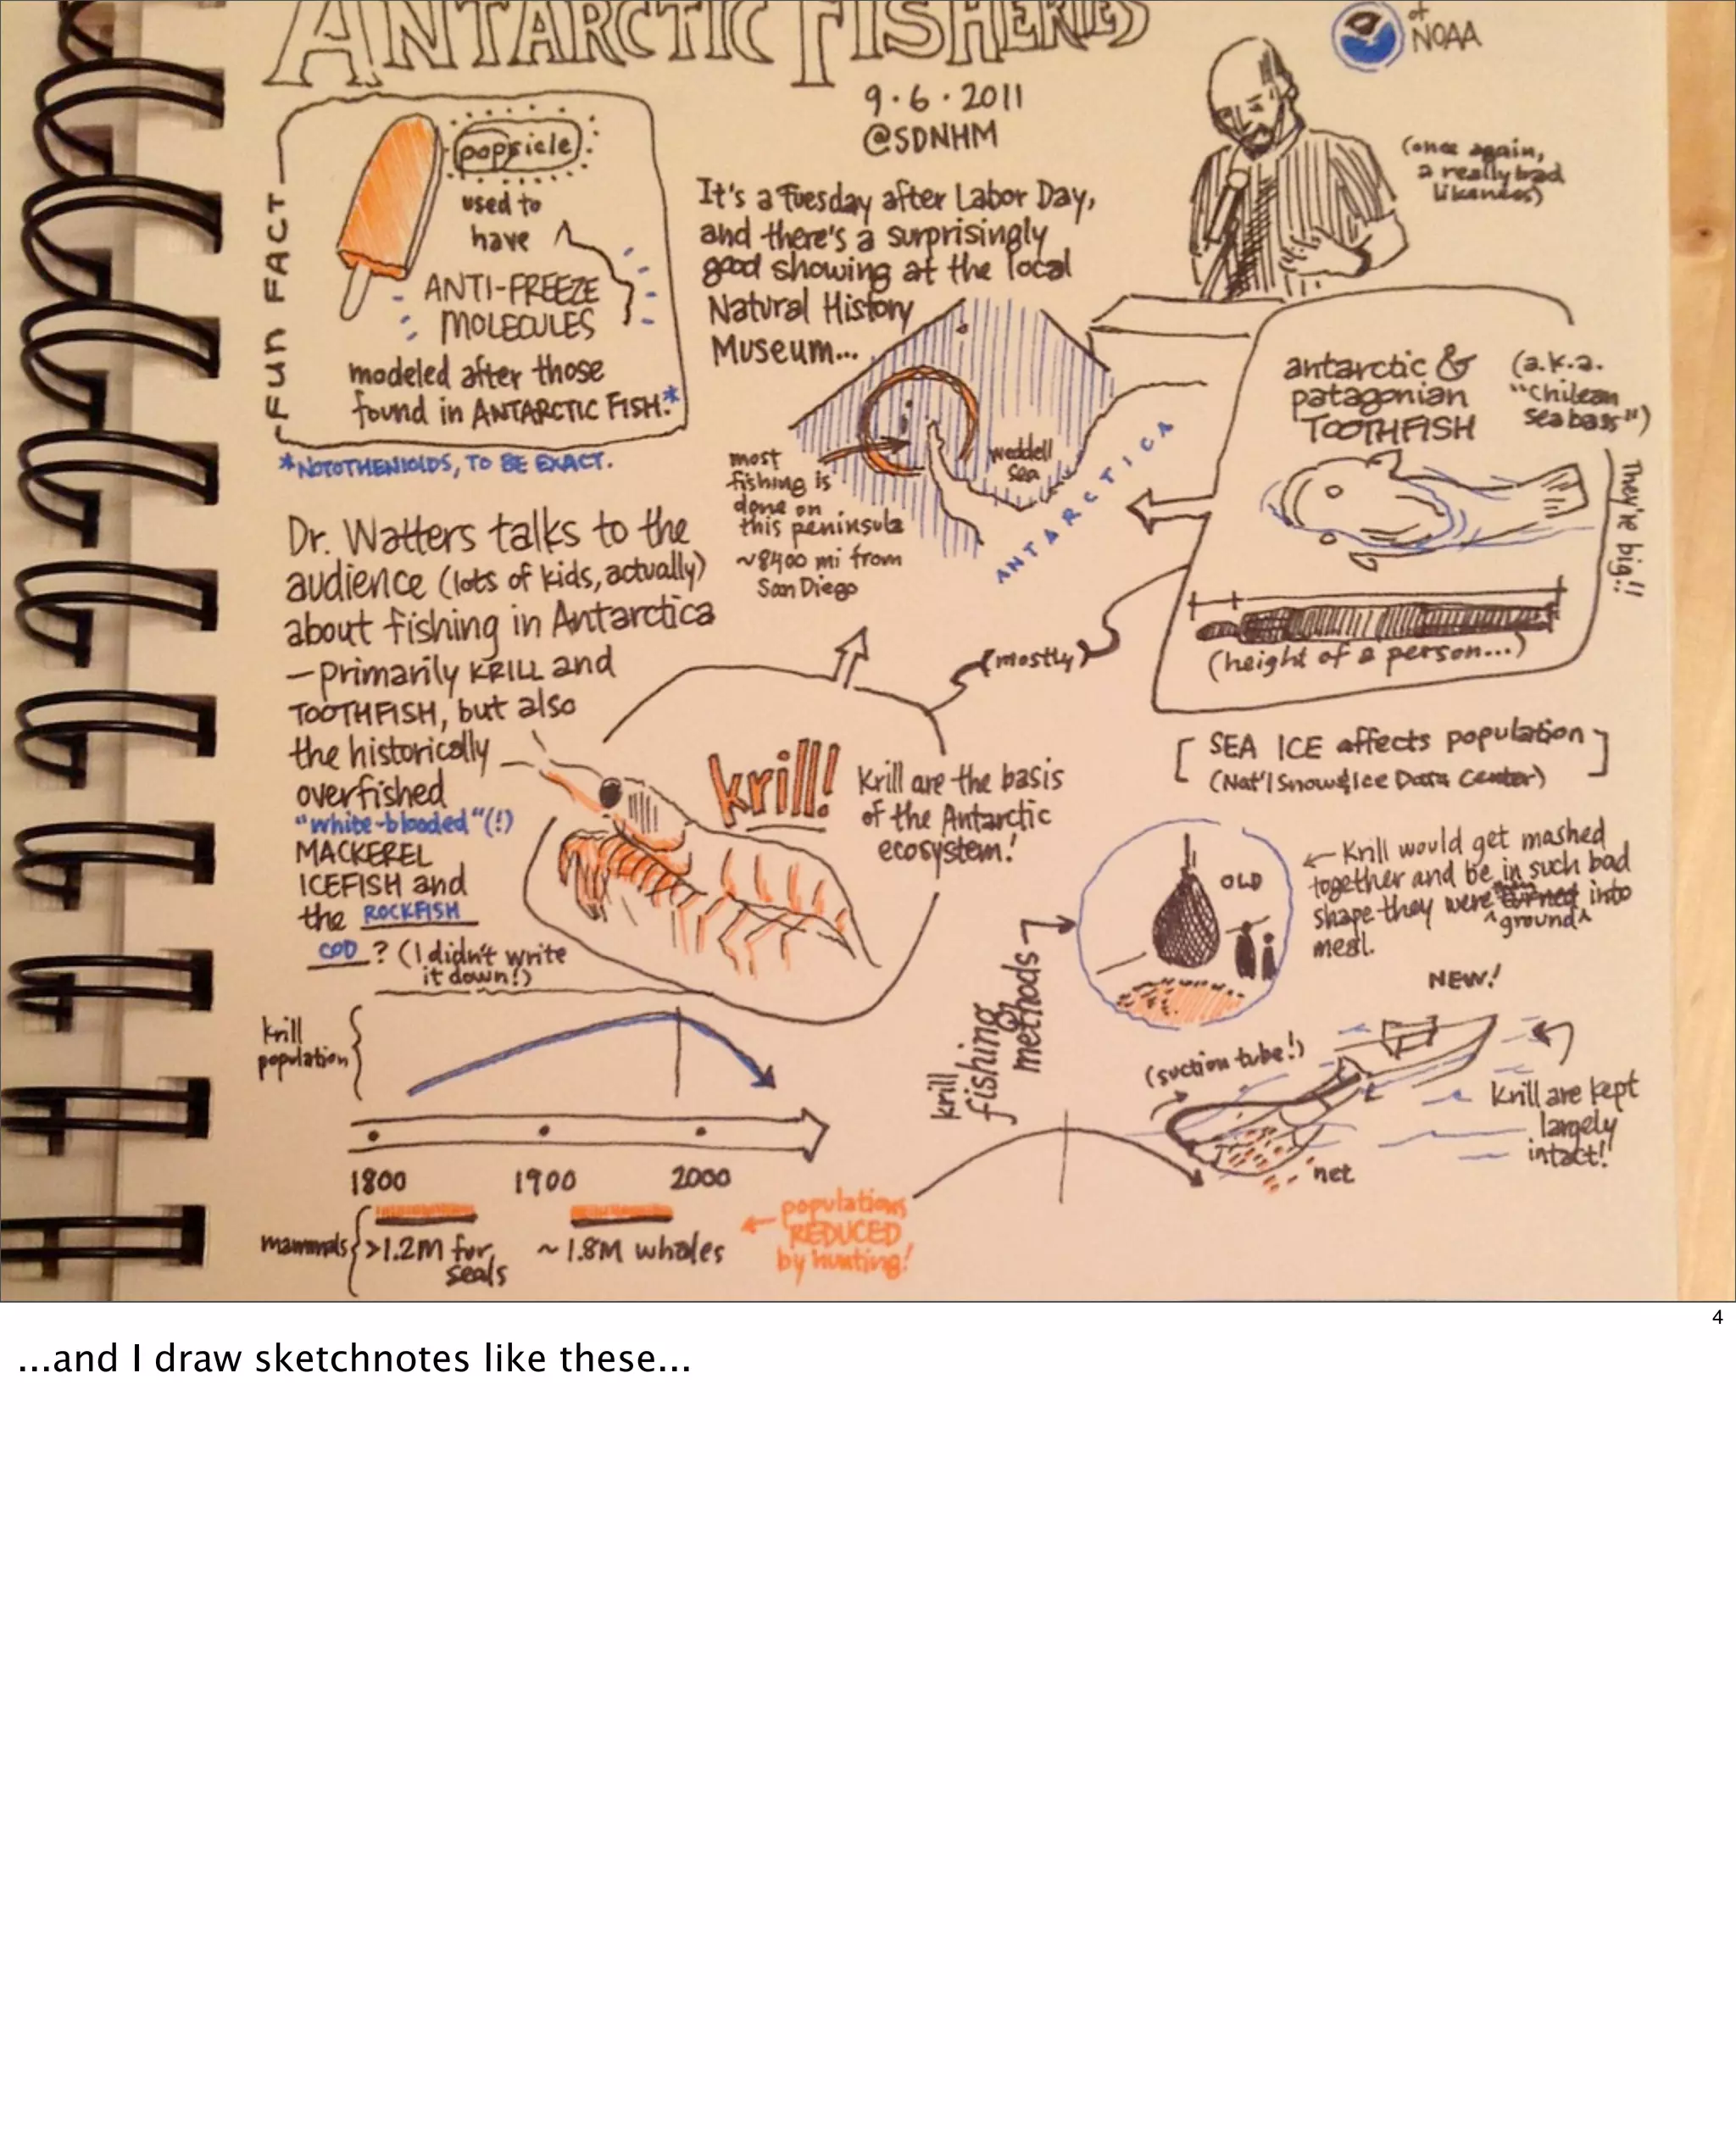 ANTARCTIC FISHERIES
of
NOAA
9·6·2011
@SDNHM
(once again,
a really bad
likeness)
FUN FACT
popsicle
used to
have
ANTI-FREEZE
MOLECULES
modeled after those
found in ANTARCTIC FISH.*
*NOTOTHENIOIDS, TO BE EXACT.
It's a Tuesday after Labor Day,
and there's a surprisingly
good showing at the local
Natural History
Museum...
most
fishing is
done on
this peninsula
~8400 mi from
San Diego
weddell
sea
ANTARCTICA
antarctic &
patagonian
TOOTHFISH
(a.k.a.
"Chilean
sea bass")
They're big!!
(height of a person...)
(mostly)
Dr. Watters talks to the
audience (lots of kids, actually)
about fishing in Antarctica
—primarily KRILL and
TOOTHFISH, but also
the historically
overfished
"white-blooded"(!)
MACKEREL
ICEFISH and
the ROCKFISH
COD? (I didn't write
it down!)
krill!
Krill are the basis
of the Antarctic
ecosystem!
[SEA ICE affects population]
(Nat'l Snow & Ice Data Center)
krill
fishing
methods
OLD
← Krill would get mashed
together and be in such bad
shape they were turned into
^ground^
meal.
NEW!
(suction tube!)
Krill are kept
largely
intact!
net
krill
population
1800 1900 2000
mammals
>1.2M fur
seals
~1.8M whales
← populations
REDUCED
by hunting!
4
...and I draw sketchnotes like these...